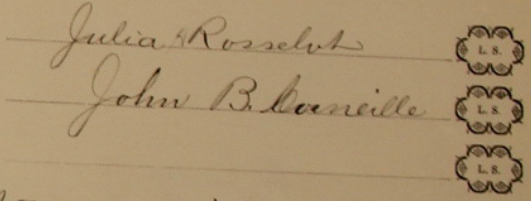 Julia Rosselot L. S.
John B. Corneille L. S.
L. S.